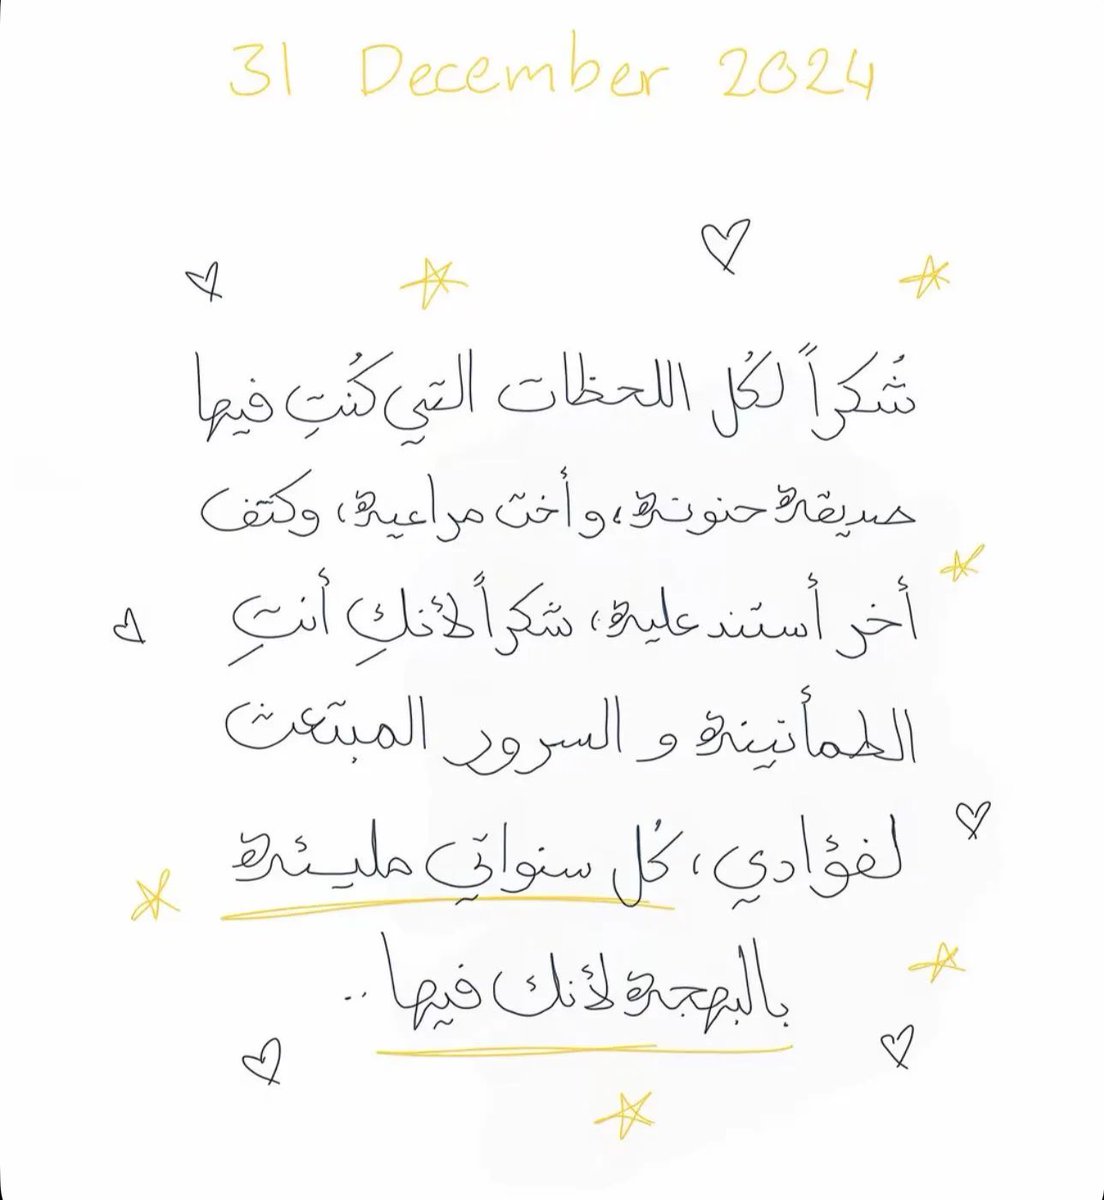 31 December 2024
شُكراً لكُل اللحظات التي كُنتِ فيها
صديقة حنونة، وأخت مراعية، وكتف
أخر أستند عليه، شكراً لأنكِ أنتِ
الطمأنينة و السرور المبتعث
لفؤادي، كُل سنواتي مليئة
بالبهجة لأنك فيها ..